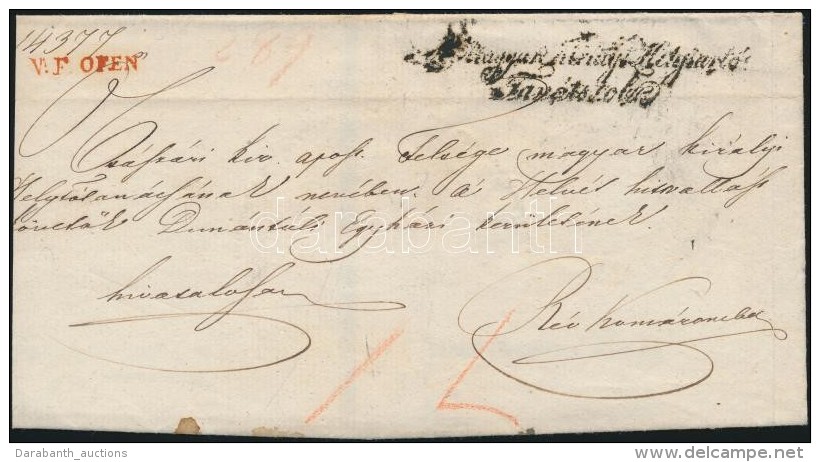 14377
V. P. OFEN
Magyar királyi Helytartó
Császári kir. apost. Felsége magyar királyi
Helytótanácsának nevében. A Helvét hitvallást
követők Dunántuli Egyházi kerületének
hivatalosan
Rév Komáromba
darabanth
Darabanth_auctions
delcampe.net